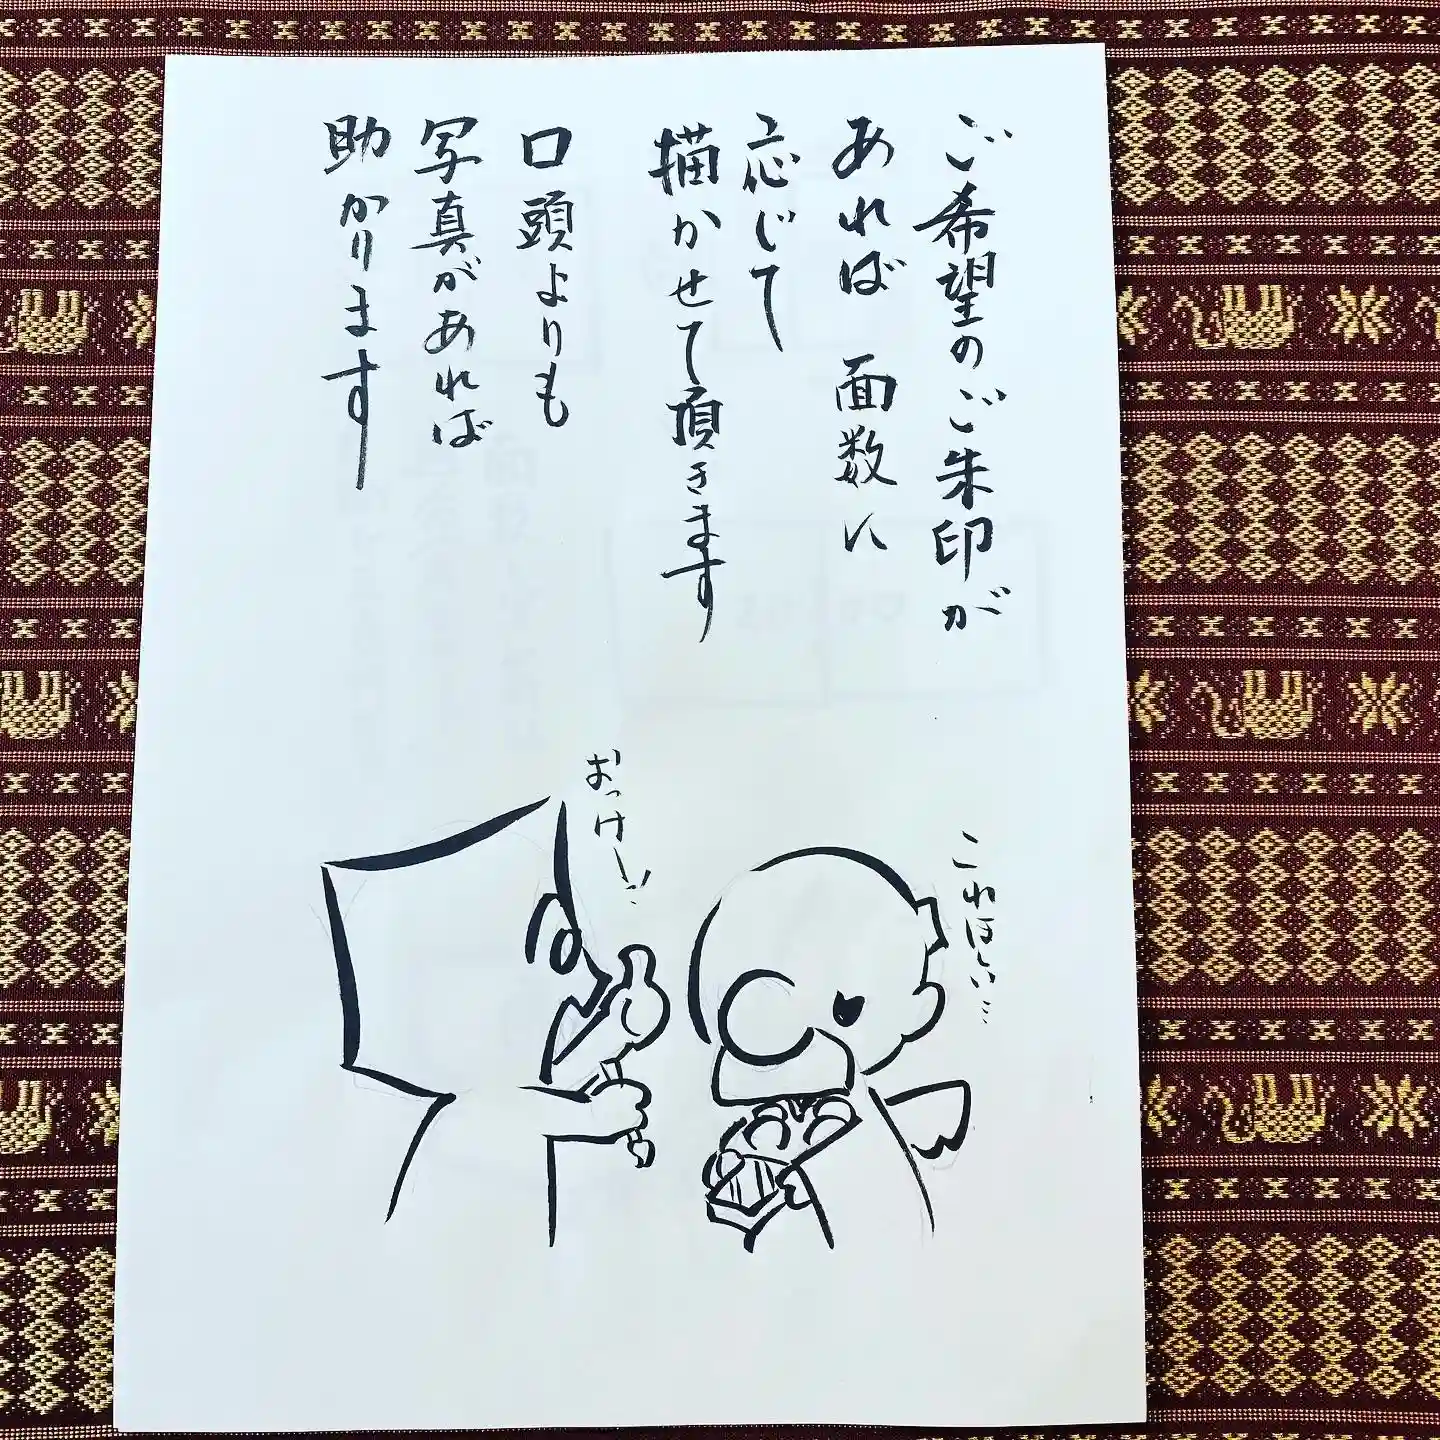 ご希望のご朱印が
あれば 面数に
応じて
描かせて頂きます
口頭よりも
写真があれば
助かります
おっけー!!
これほしい…